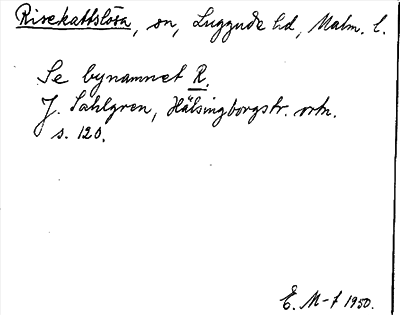 Risekattslösa, sn, Luggude hd, Malm. l.
Se bynamnet R.
J. Sahlgren, Hälsingborgstr. ortn.
s. 120.
E. M-f 1950.